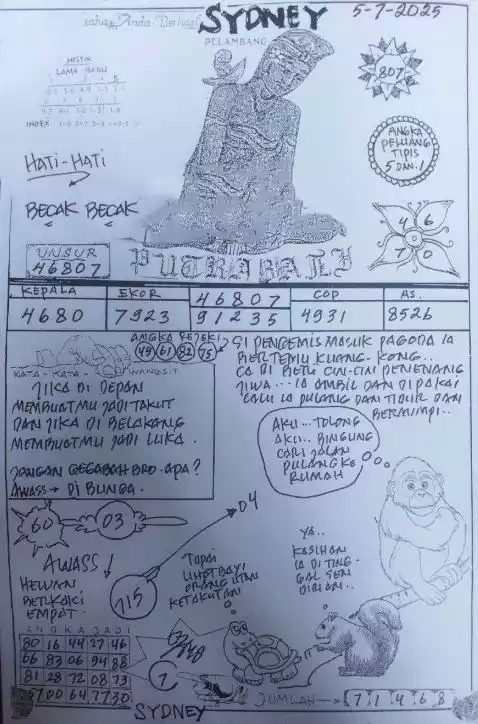 SYDNEY
5-7-2025
PELAMBANG
MISTIK
LAMA BARU
INDEX
807
ANGKA
PELUANG
TIPIS
5 DAN 1
HATI-HATI
BECAK BECAK
4 6
7 0
UNSUR
46807
PUTRABALI
KEPALA EKOR 46807 COP AS.
4680 7923 91235 4931 8526
ANGKA REJEKI
49 61 82 75
KATA-KATA WANGSIT
JIKA DI DEPAN
MEMBUATMU JADI TAKUT
DAN JIKA DI BELAKANG
MEMBUATMU JADI LUKA.
JANGAN GEGABAH BRO. APA?
AWASS → DI BUNGA.
SI PENGEMIS MASUK PAGODA IA
BERTEMU KUANG-KONG..
IA DI BERI CIN-CIN PENENANG
JIWA...IA AMBIL DAN DI PAKAI
LALU IA PULANG DAN TIDUR DAN
BERMIMPI..
AKU... TOLONG
AKU.. BINGUNG
CARI JALAN
PULANG KE
RUMAH
60
03
04
715
AWASS
HEWAN
BERKAKI
EMPAT.
TUPAI
LIHAT BAYI
ORANG UTAN
KETAKUTAN
YA..
KASIHAN
IA DI TING-
GAL SEN
DIRIAN..
ANGKA JADI
80 16 44 27 46
66 83 06 94 88
81 28 72 08 73
00 64 77 30
7
JUMLAH → 7 1 4 6 8
SYDNEY